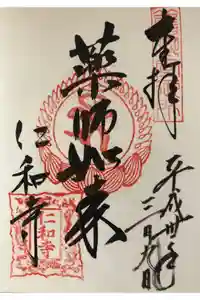 奉拝
平成卅一年
三月九日
薬師如来
仁和寺
仁和寺